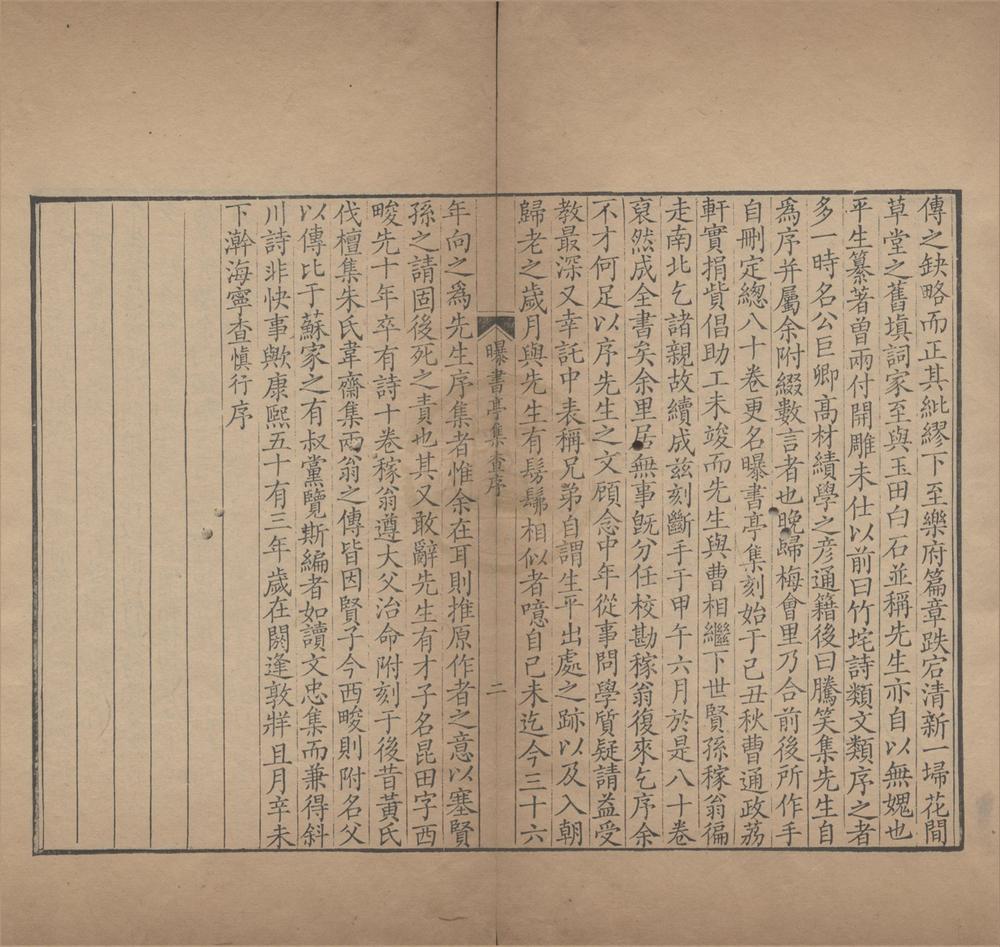 傳之缺略而正其紕繆下至樂府篇章跌宕清新一埽花間
草堂之舊塡詞家至與玉田白石並稱先生亦自以無媿也
平生纂著曾兩付開雕未仕以前曰竹垞詩類文類序之者
多一時名公巨卿高材績學之彦通籍後曰騰笑集先生自
爲序并屬余附綴數言者也晚歸梅會里乃合前後所作手
自刪定緫八十卷更名曝書亭集刻始于己丑秋曹通政荔
軒實捐貲倡助工未竣而先生與曹相繼下世賢孫稼翁徧
走南北乞諸親故續成兹刻斷手于甲午六月於是八十卷
裒然成全書矣余里居無事旣分任校勘稼翁復來乞序余
不才何足以序先生之文顧念中年從事問學質疑請益受
教最深又幸託中表稱兄弟自謂生平出處之跡以及入朝
歸老之歲月與先生有髣髴相似者噫自己未迄今三十六
曝書亭集查序
二
年向之爲先生序集者惟余在耳則推原作者之意以塞賢
孫之請固後死之責也其又敢辭先生有才子名昆田字西
畯先十年卒有詩十卷稼翁遵大父治命附刻于後昔黃氏
伐檀集朱氏韋齋集兩翁之傳皆因賢子今西畯則附名父
以傳比于蘇家之有叔黨覽斯編者如讀文忠集而兼得斜
川詩非快事歟康熙五十有三年歲在閼逢敦牂且月辛未
下澣海寧查愼行序